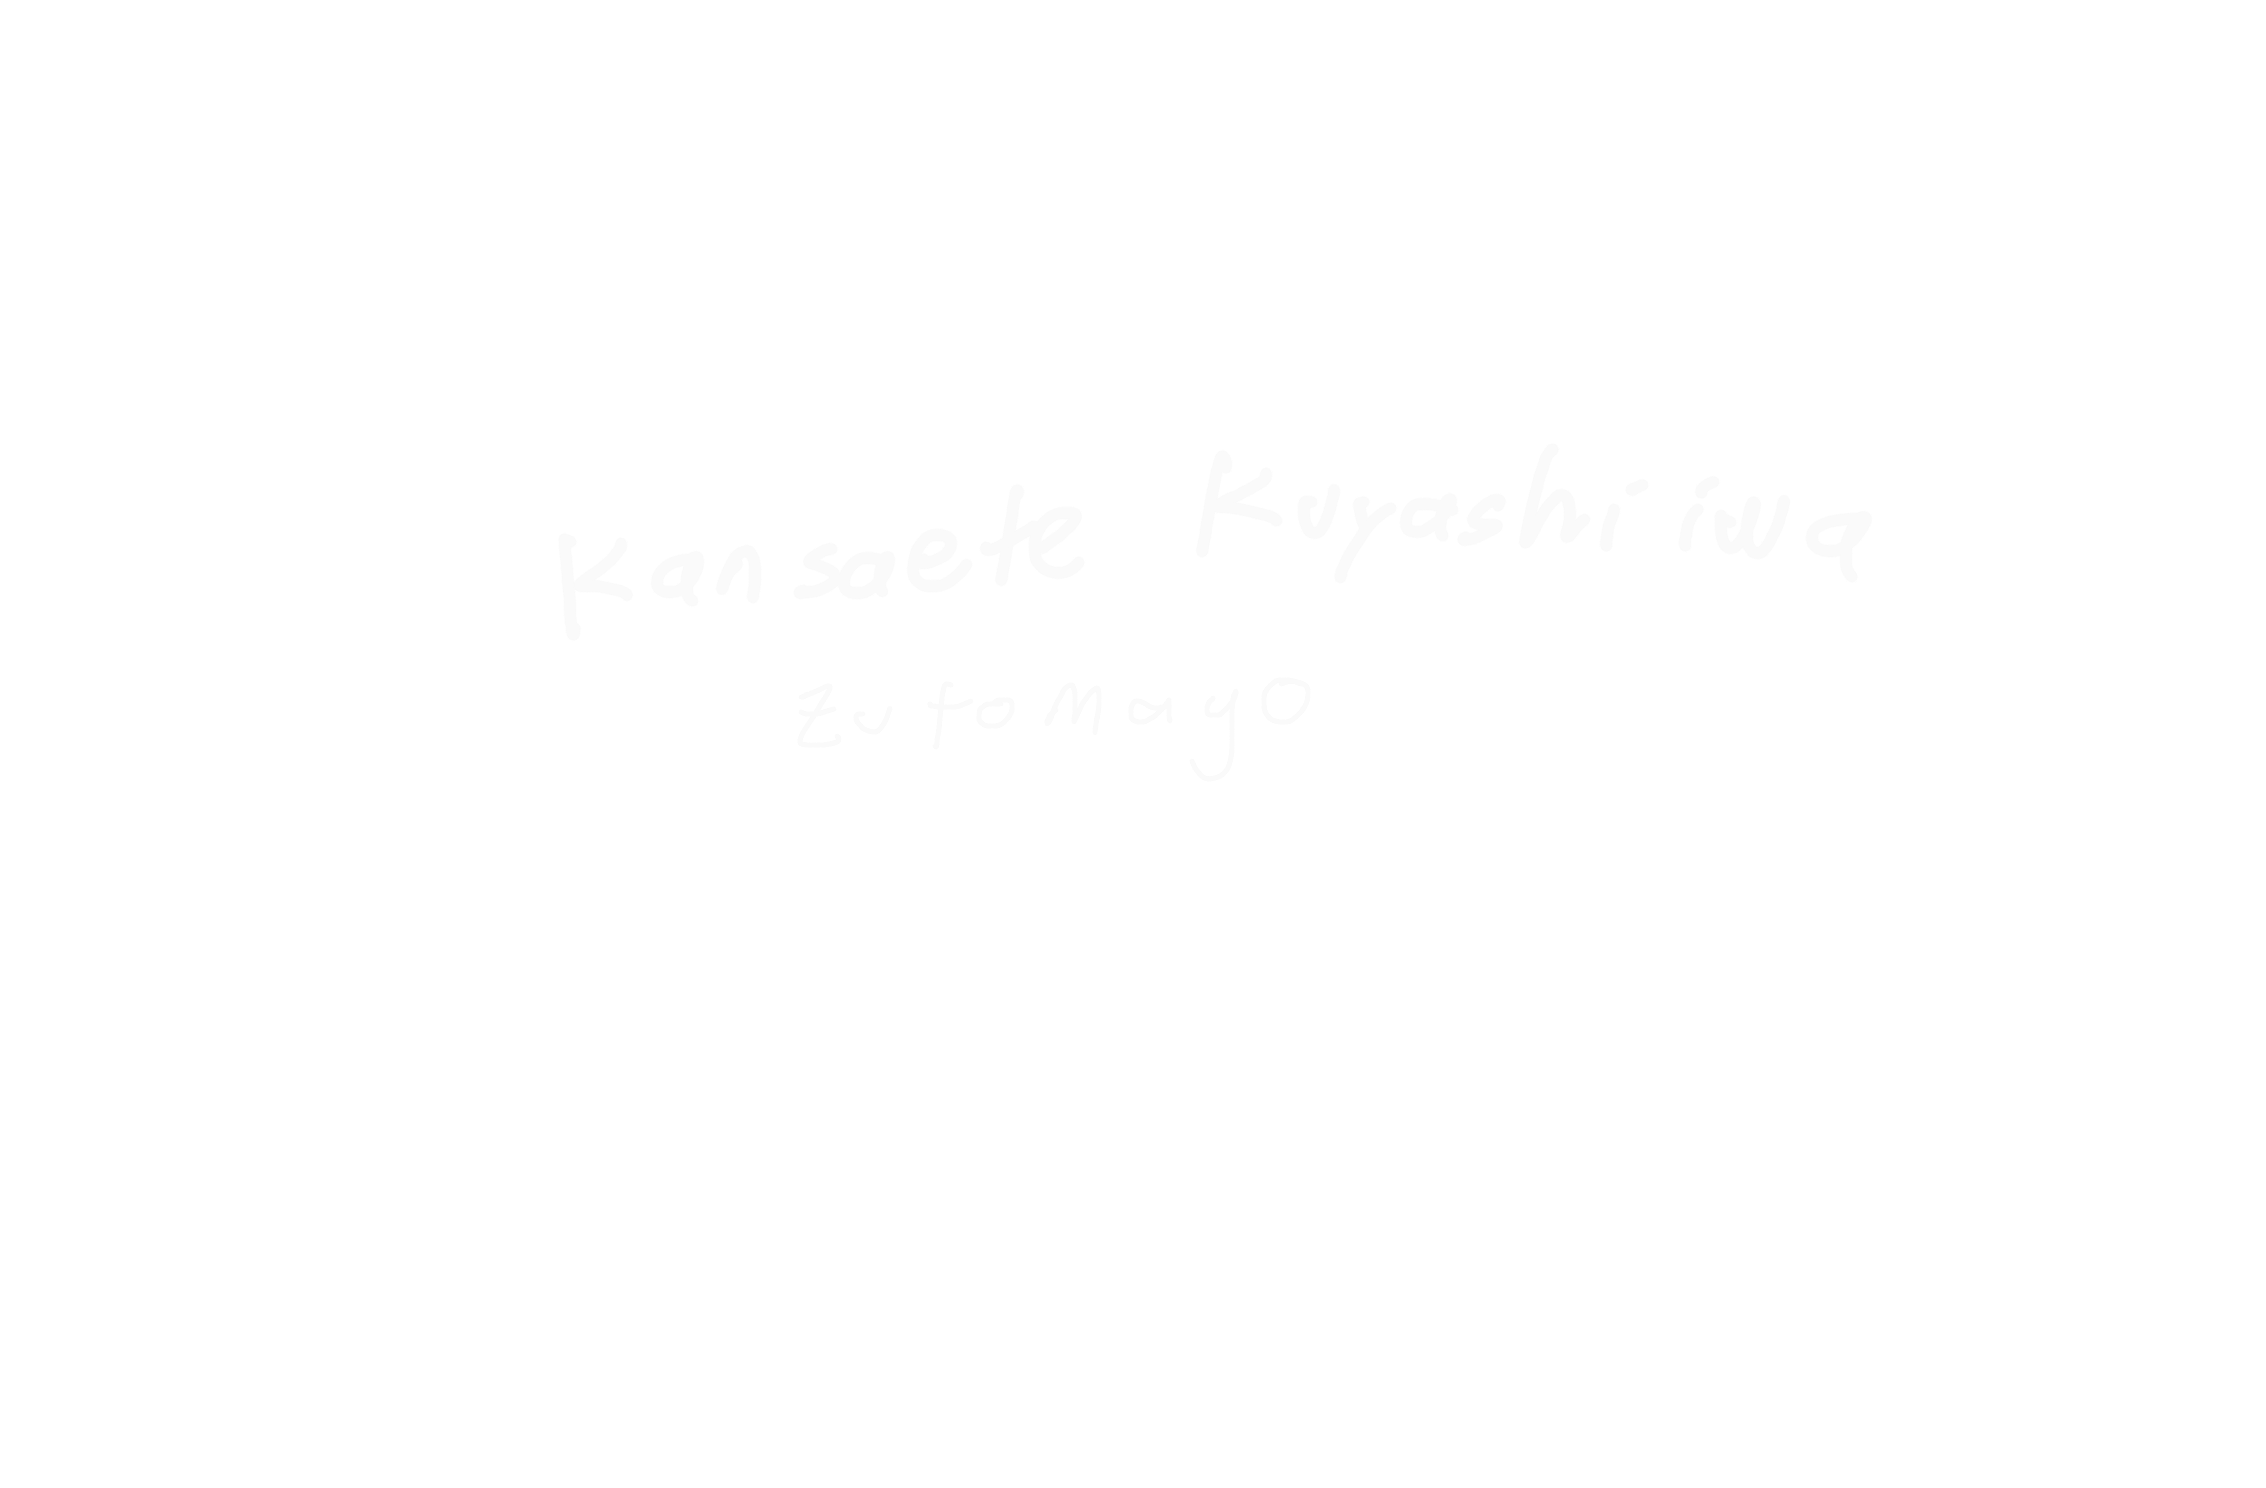 Kansaete Kuyashiiwa
Zutomayo